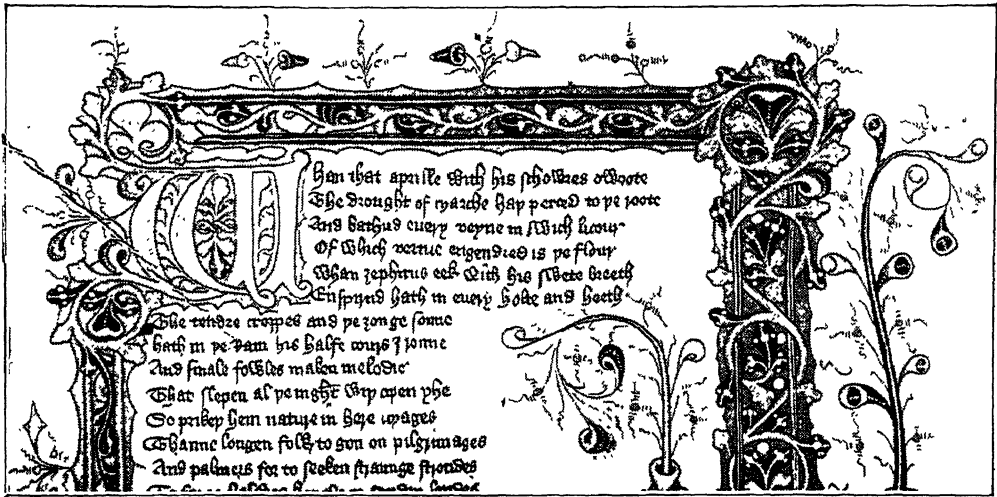 Whan that aprille with his schowres swoote
The drought of marche haþ perced to þe roote
And bathud euery veyne in swich licour
Of which vertue engendred is þe flour
Whan zephirus eek with his swete breeth
Enspirud hath in euery holte and heeth
The tendre croppes and þe ȝonge sonne
hath in þe Ram his halfe cours I ronne
And smale fowles maken melodie
That slepen al þe night wiþ open yhe
So prikeþ hem nature in here corages
Thanne longen folk to gon on pilgrimages
And palmers for to seeken straunge strondes